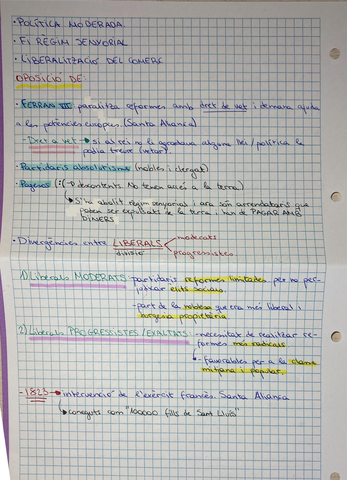 · POLÍTICA MODERADA.
· FI RÈGIM SENYORIAL
· LIBERALITZACIÓ DEL COMERÇ
OPOSICIÓ DE:
· FERRAN VII: paralitza reformes amb dret de vet i demana ajuda
a les potències europees. (Santa Aliança)
- Dret a vet → si al rei no la agradava alguna llei/política la
podia treure (vetar).
· Partidaris absolutisme (nobles i clergat)
· Pagesos (:( → descontents. No tenen accés a la terra)
↳ S'ha abolit règim senyorial i ara són arrendataris que
poden ser expulsats de la terra i han de PAGAR AMB
DINERS
· Divergències entre LIBERALS moderats
divisió progressistes
1) Liberals MODERATS: partidaris reformes limitades per no per-
judicar elits socials
- part de la noblesa que era més liberal i
burgesia propietària
2) Liberals PROGRESSISTES/EXALTATS: - necessitat de realitzar re-
formes més radicals
- favorables per a la classe
mitjana i popular.
- 1823 → intervenció de l'exèrcit francès. Santa Aliança
↳ coneguts com "100000 fills de Sant Lluís"